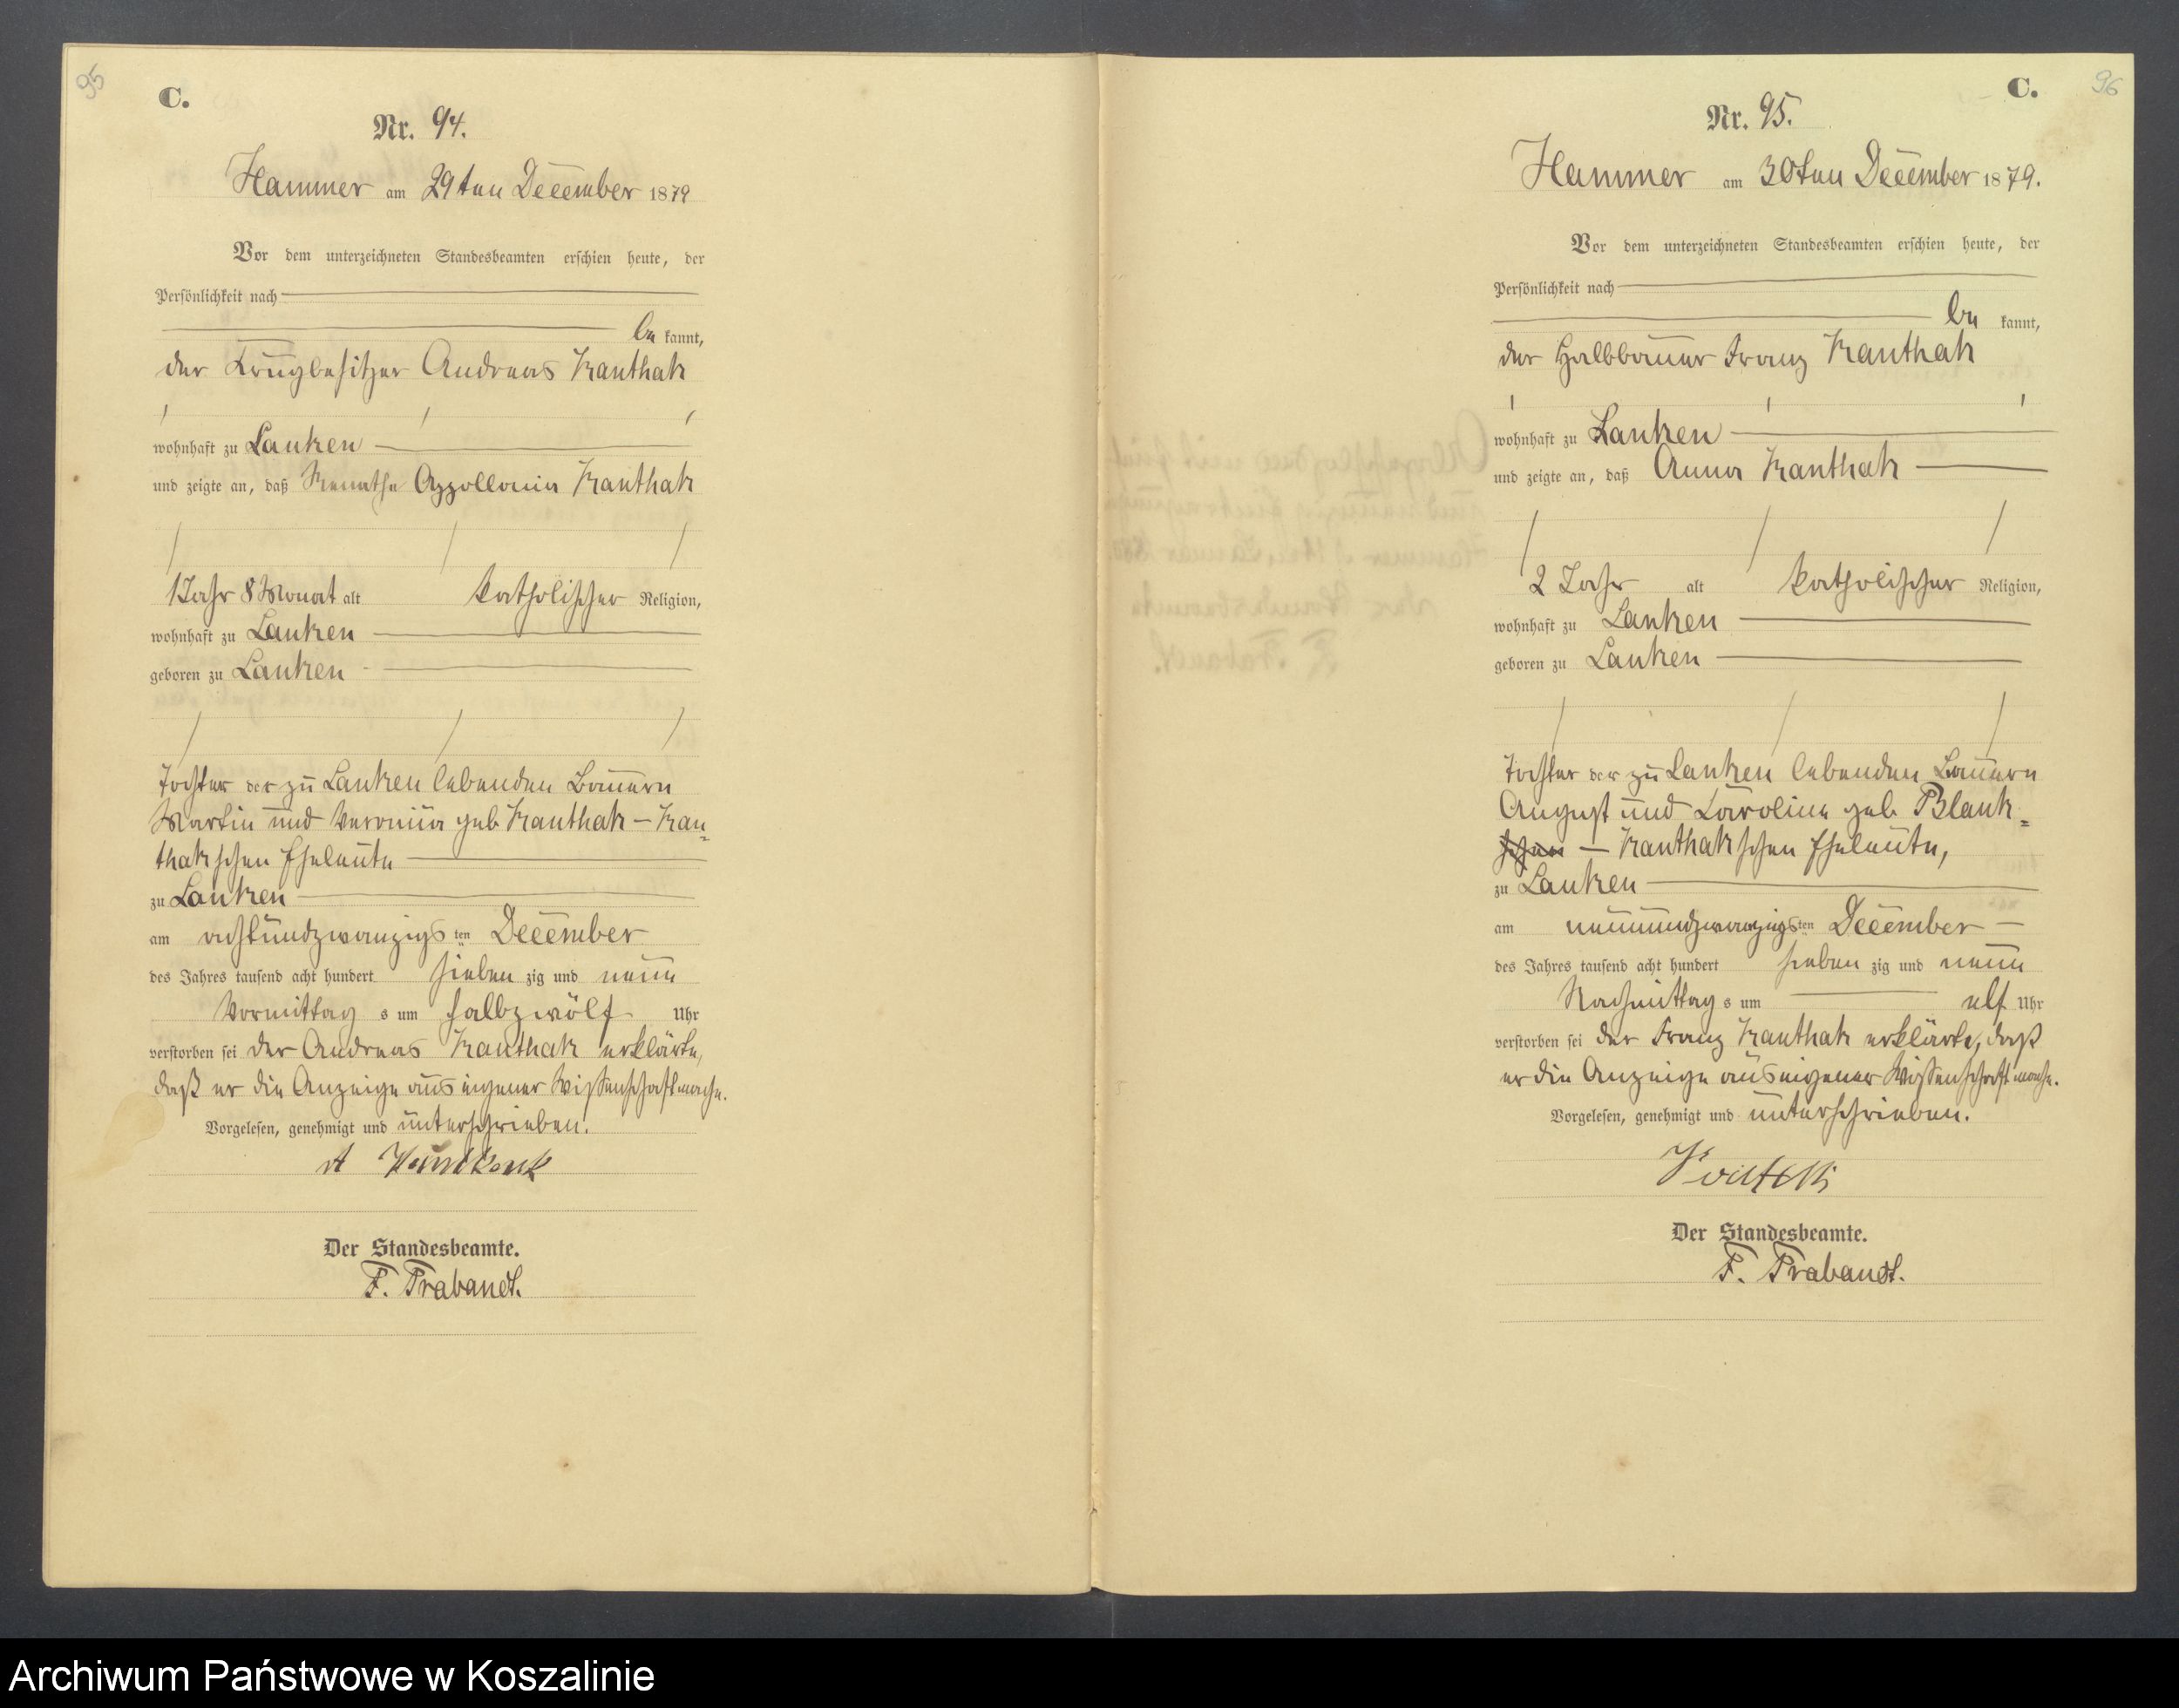 95
C.
Nr. 94.
Hammer am 29ten December 1879
Vor dem unterzeichneten Standesbeamten erschien heute, der
Persönlichkeit nach
be kannt,
der Krugbesitzer Andreas Kanthak
wohnhaft zu Lanken
und zeigte an, daß Renathe Appollonia Kanthak
1 Jahr 8 Monat alt katholischer Religion,
wohnhaft zu Lanken
geboren zu Lanken
Tochter der zu Lanken lebenden Bauern
Martin und Veronica geb Kanthak – Kan=
thakschen Eheleute
zu Lanken
am achtundzwanzigsten December
des Jahres tausend acht hundert sieben zig und neun
Vormittag s um halbzwölf Uhr
verstorben sei der Andreas Kanthak erklärte,
daß er die Anzeige aus eigener Wissenschaft mache.
Vorgelesen, genehmigt und unterschrieben.
A
Der Standesbeamte.
F. Trabandt.
96
C.
Nr. 95.
Hammer am 30ten December 1879.
Vor dem unterzeichneten Standesbeamten erschien heute, der
Persönlichkeit nach
be kannt,
der Halbbauer Franz Kanthak
wohnhaft zu Lanken
und zeigte an, daß Anna Kanthak
2 Jahr alt katholischer Religion,
wohnhaft zu Lanken
geboren zu Lanken
Tochter der zu Lanken lebenden Bauern
August und Caroline geb. Blank=
schen – Kanthakschen Eheleute,
zu Lanken
am neunundzwanzigsten December
des Jahres tausend acht hundert sieben zig und neun
Nachmittag s um elf Uhr
verstorben sei der Franz Kanthak erklärte, daß
er die Anzeige aus eigener Wissenschaft mache.
Vorgelesen, genehmigt und unterschrieben.
Der Standesbeamte.
F. Trabandt.
Archiwum Państwowe w Koszalinie